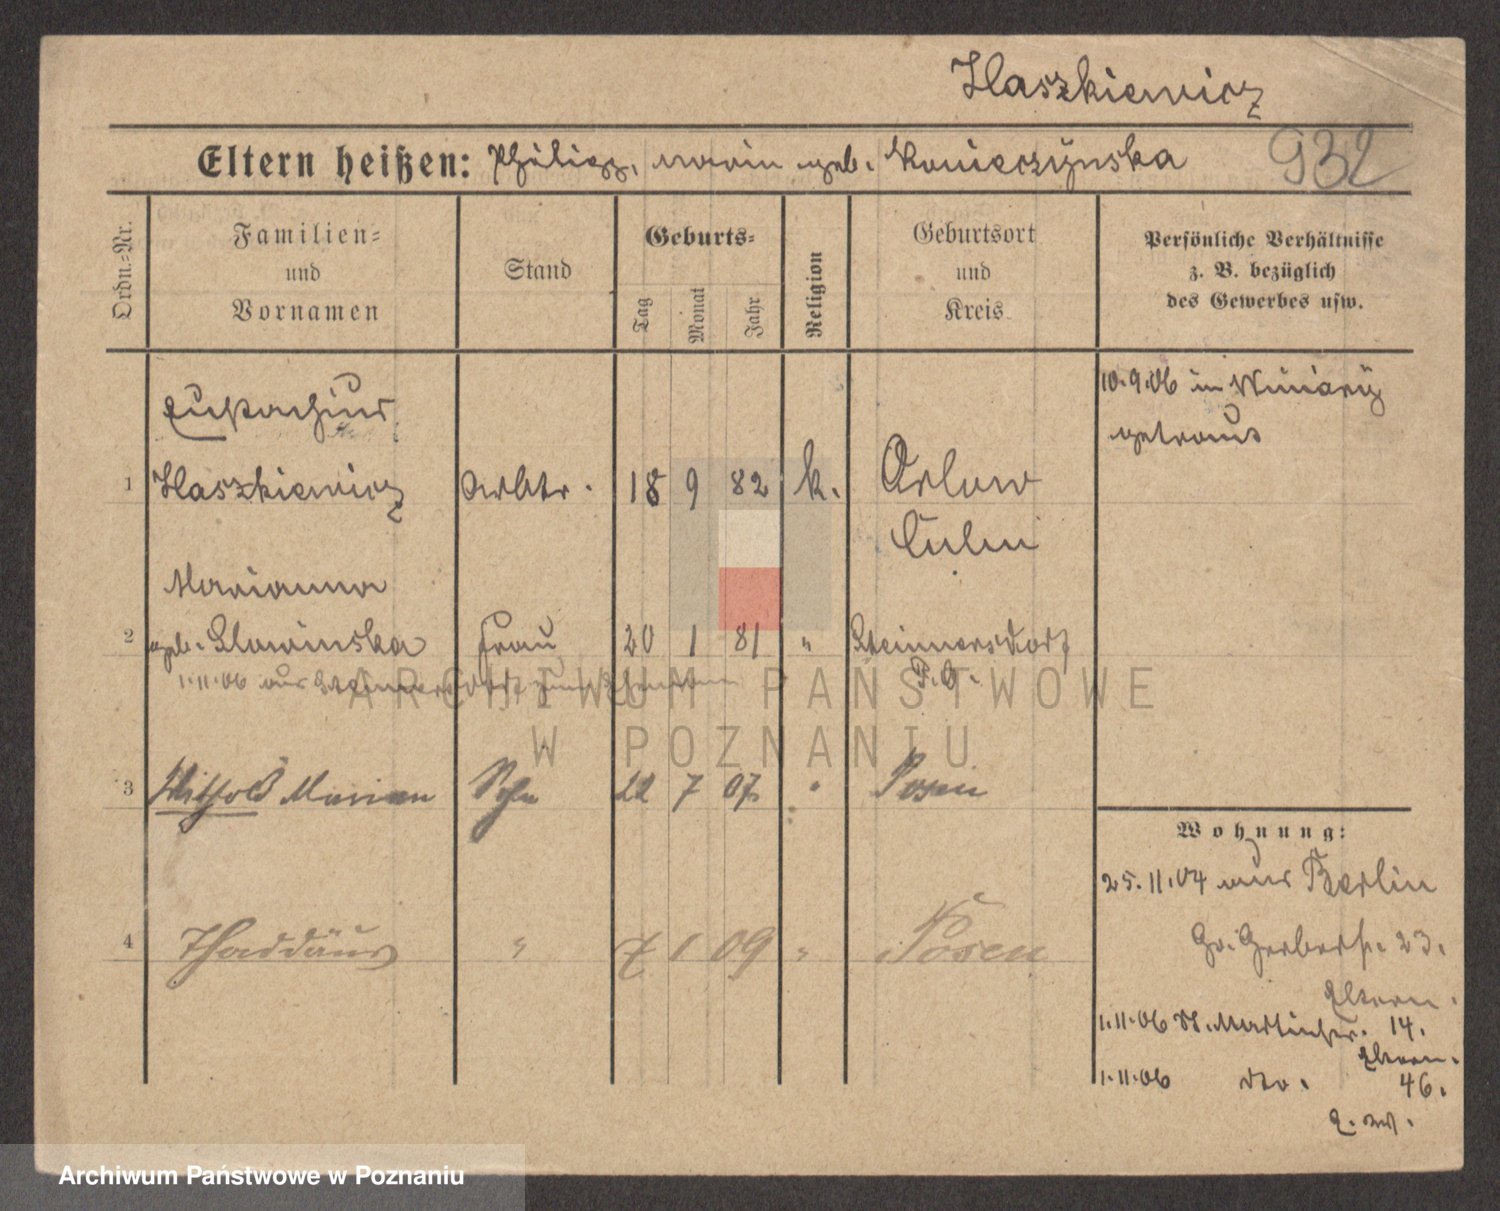 Haszkiewicz
Eltern heißen: Philipp, Marie geb. Konieczynska
932
Ordn.=Nr.
Familien=
und
Vornamen
Stand
Geburts=
Tag
Monat
Jahr
Religion
Geburtsort
und
Kreis
Persönliche Verhältnisse
z. B. bezüglich
des Gewerbes usw.
Eustachius
1 Haszkiewicz Arbtr. 18 9 82 k. Orlow
Culm
10.9.06 in Winiary
getraut
Marianna
2 geb. Slowinska Frau 20 1 81 " Steinnersdorf
P. O.
1.11.06 aus
3 Withold Marian Sohn 22 7 07 " Posen
4 Thaddäus " 7 1 09 " Posen
Wohnung:
25.11.04 aus Berlin
Gr. Gerberstr. 23.
Eltern.
1.11.06 St. Martinstr. 14.
Eltern.
1.11.06 dto. 46.
ARCHIWUM PAŃSTWOWE
W POZNANIU
Archiwum Państwowe w Poznaniu